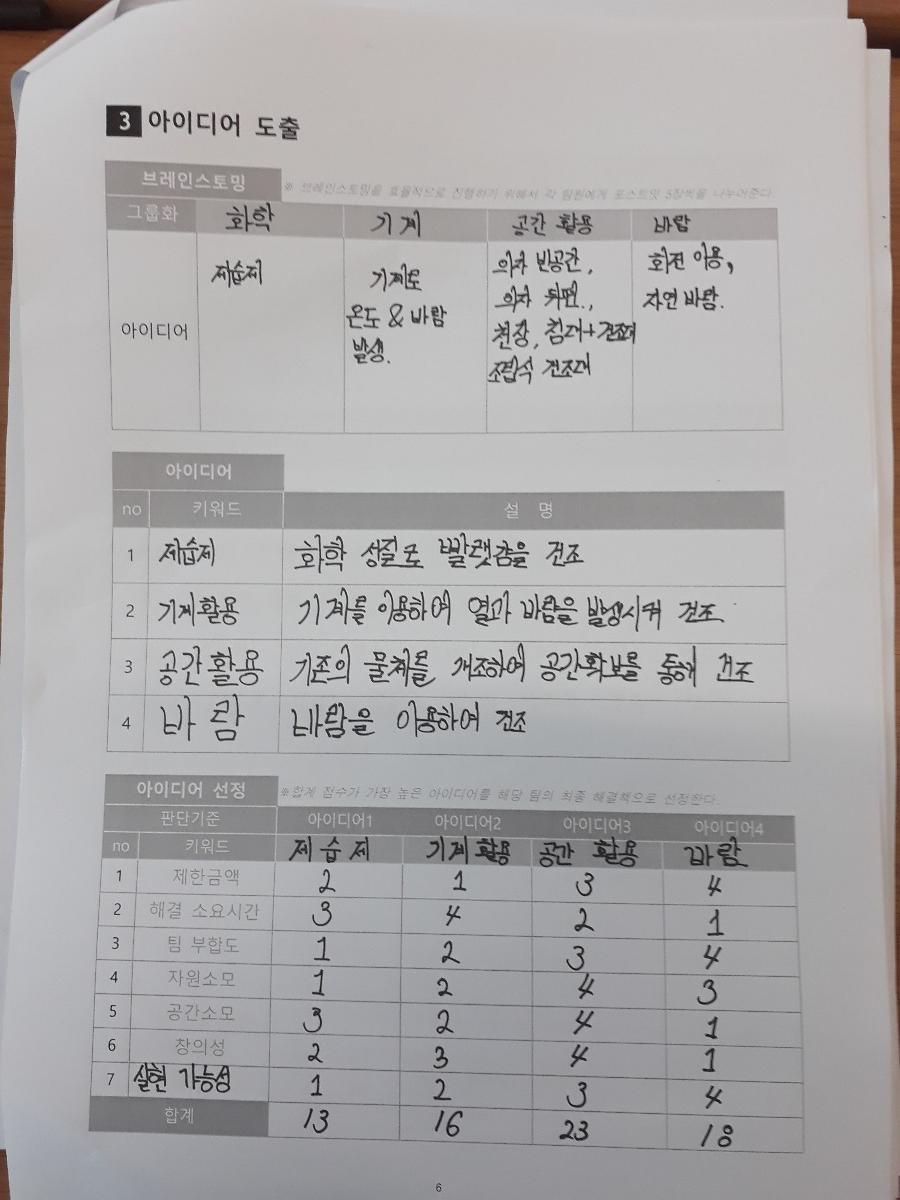 3 아이디어 도출
브레인스토밍
※ 브레인스토밍을 효율적으로 진행하기 위해서 각 팀원에게 포스트잇 5장씩을 나누어준다.
그룹화 화학 기계 공간 활용 바람
아이디어
제습제
기계로
온도 & 바람
발생.
의자 빈공간,
의자 뒤편.,
천장, 침대+건조대
조립식 건조대
회전 이용,
자연 바람.
아이디어
no 키워드 설 명
1 제습제 화학 성질로 빨랫감을 건조
2 기계활용 기계를 이용하여 열과 바람을 발생시켜 건조.
3 공간활용 기존의 물체를 개조하여 공간확보를 통해 건조
4 바람 바람을 이용하여 건조
아이디어 선정
※합계 점수가 가장 높은 아이디어를 해당 팀의 최종 해결책으로 선정한다.
판단기준 아이디어1 아이디어2 아이디어3 아이디어4
no 키워드 제습제 기계활용 공간 활용 바람
1 제한금액 2 1 3 4
2 해결 소요시간 3 4 2 1
3 팀 부합도 1 2 3 4
4 자원소모 1 2 4 3
5 공간소모 3 2 4 1
6 창의성 2 3 4 1
7 실현 가능성 1 2 3 4
합계 13 16 23 18
6